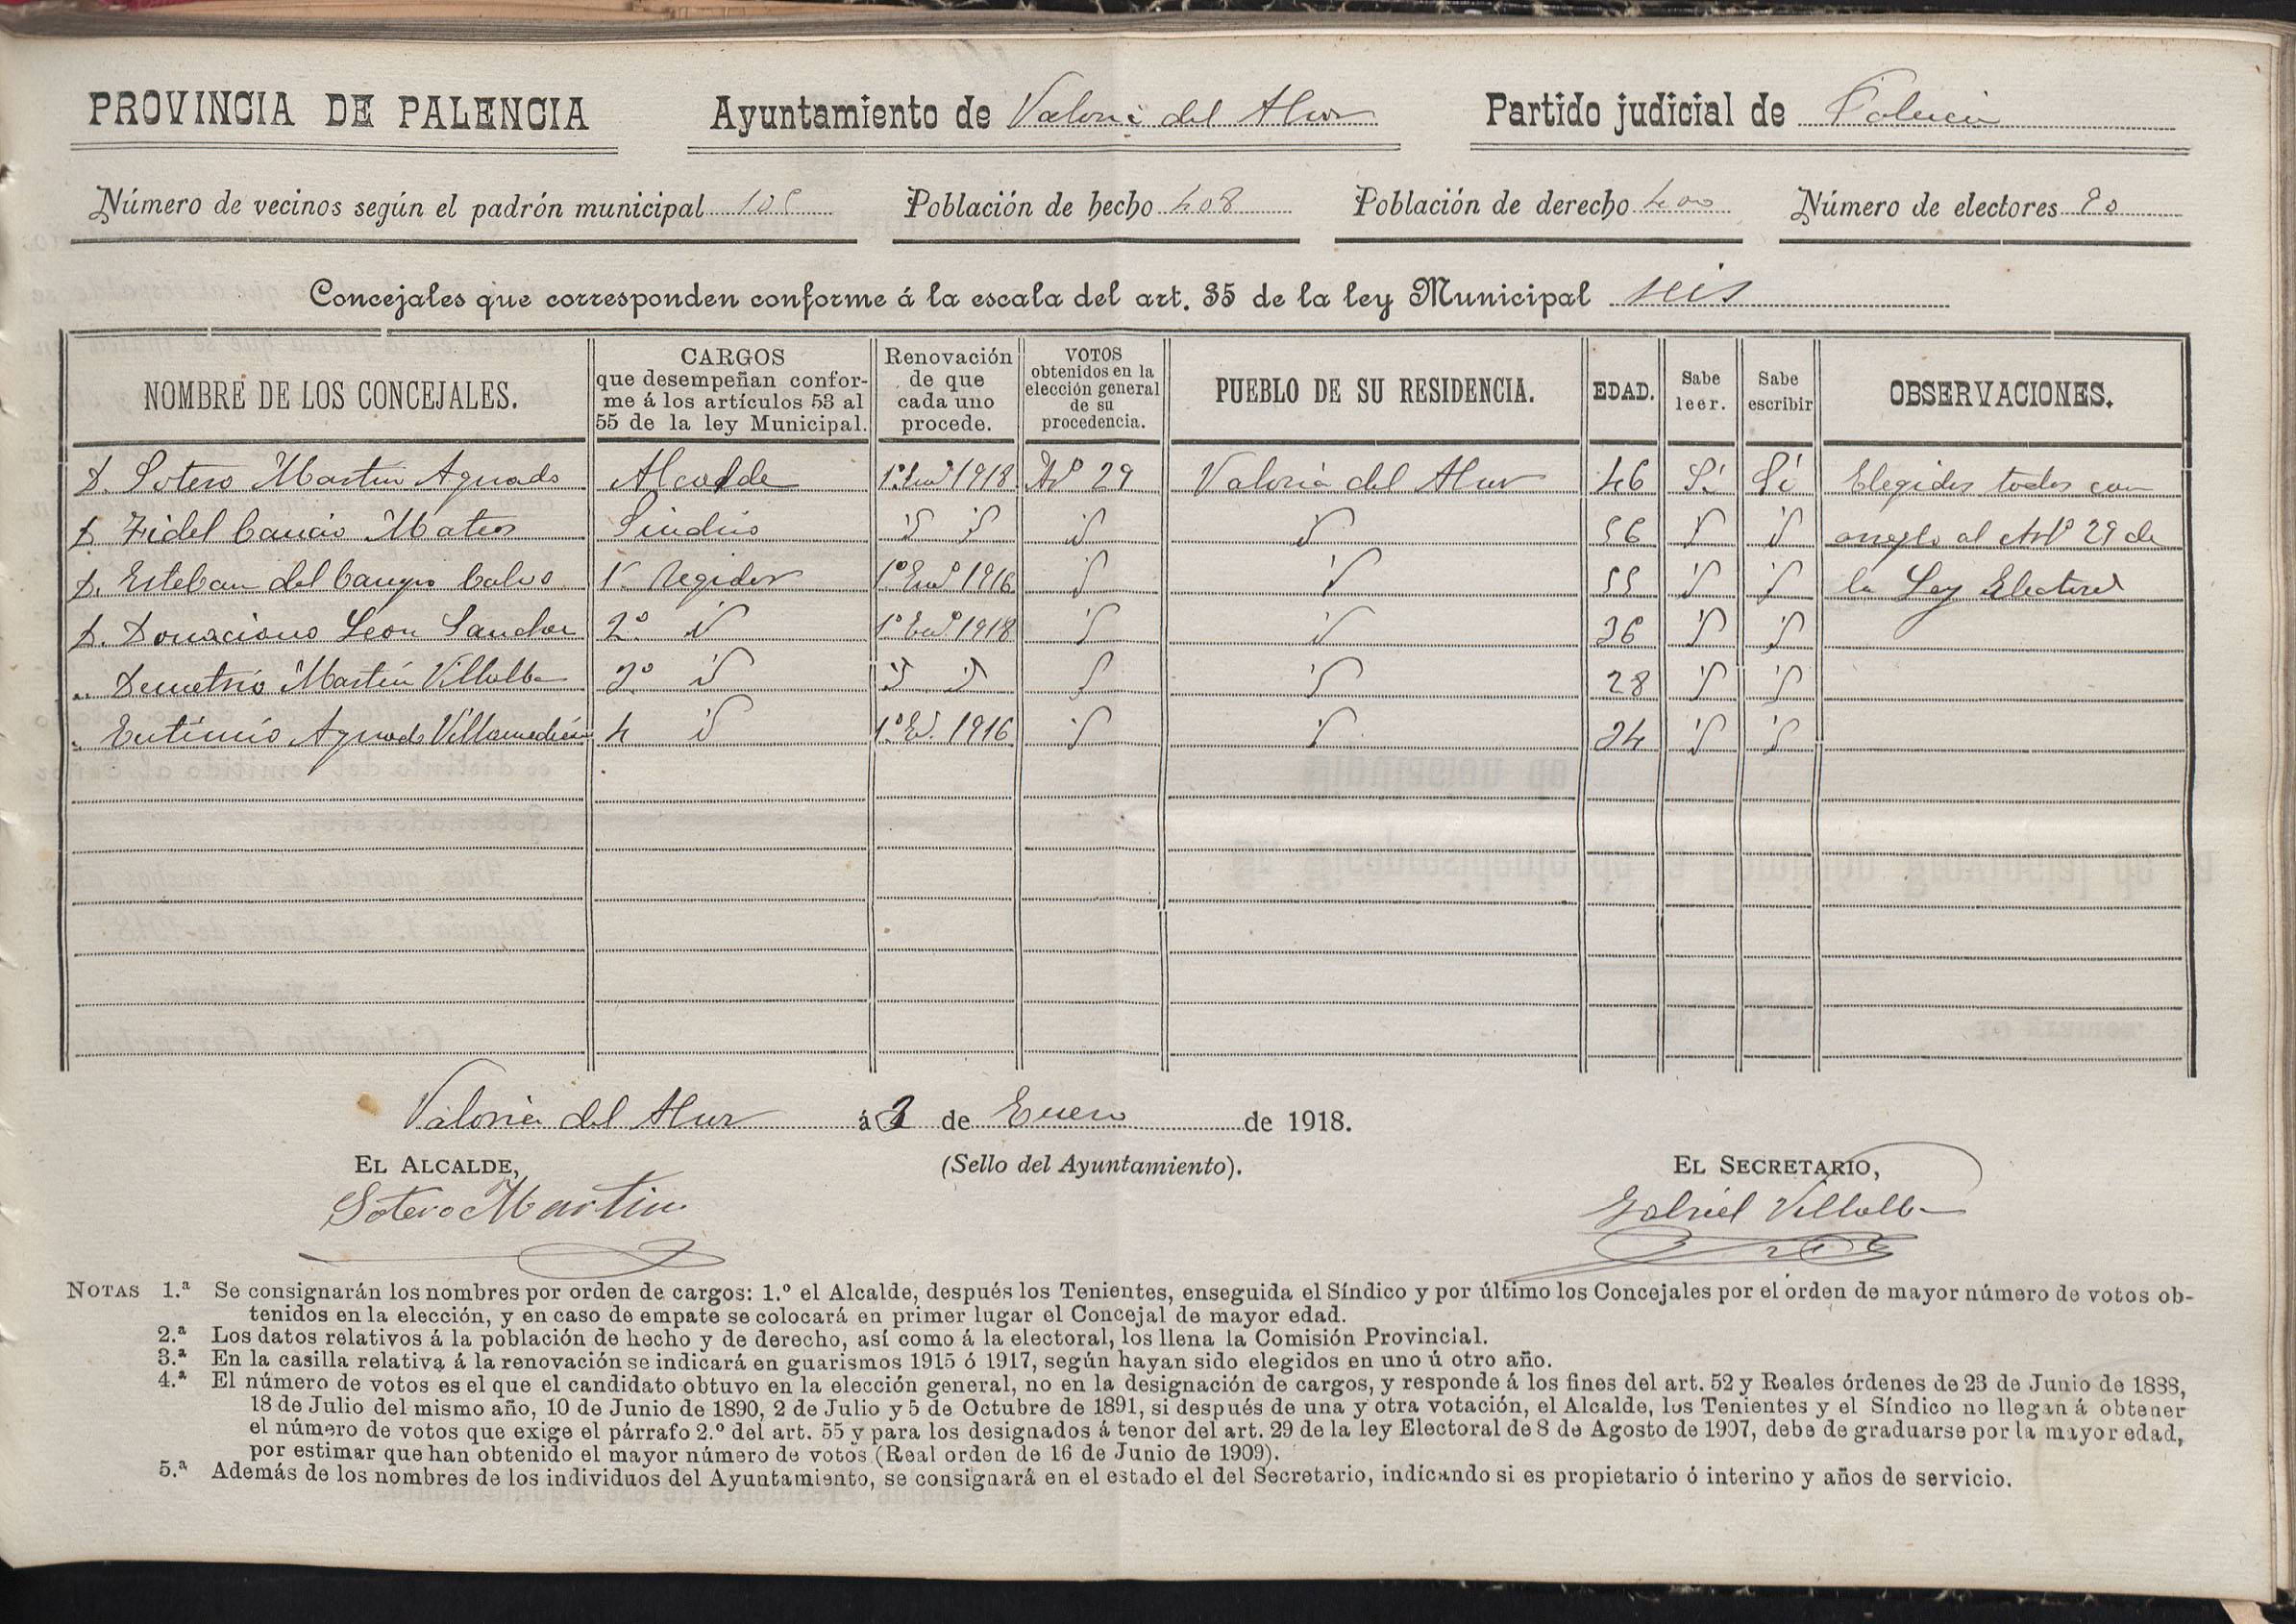 PROVINCIA DE PALENCIA Ayuntamiento de Valoria del Alcor Partido judicial de Palencia
Número de vecinos según el padrón municipal 105 Población de hecho 408 Población de derecho 400 Número de electores 90
Concejales que corresponden conforme á la escala del art. 35 de la ley Municipal seis
NOMBRE DE LOS CONCEJALES. CARGOS que desempeñan conforme á los artículos 53 al 55 de la ley Municipal. Renovación de que cada uno procede. VOTOS obtenidos en la elección general de su procedencia. PUEBLO DE SU RESIDENCIA. EDAD. Sabe leer. Sabe escribir OBSERVACIONES.
D. Sotero Martin Aguado Alcalde 1º Enº 1918 Artº 29 Valoria del Alcor 46 Sí Sí Elegidos todos con
D. Fidel Cancio Mateo Sindico id id id id 56 id id arreglo al Artº 29 de
D. Esteban del Campo Calvo 1º Regidor 1º Enº 1916 id id 55 id id la Ley Electoral
D. Donaciano Leon Sanchez 2º id 1º Enº 1918 id id 36 id id
" Demetrio Martín Villalba 3º id id id id id 28 id id
" Eutimio Aguado Villamediana 4 id 1º Eº 1916 id id 34 id id
Valoria del Alcor á 2 de Enero de 1918.
EL ALCALDE, (Sello del Ayuntamiento). EL SECRETARIO,
Sotero Martin Gabriel Villalba
NOTAS 1.ª Se consignarán los nombres por orden de cargos: 1.º el Alcalde, después los Tenientes, enseguida el Síndico y por último los Concejales por el orden de mayor número de votos ob-
tenidos en la elección, y en caso de empate se colocará en primer lugar el Concejal de mayor edad.
2.ª Los datos relativos á la población de hecho y de derecho, así como á la electoral, los llena la Comisión Provincial.
3.ª En la casilla relativa á la renovación se indicará en guarismos 1915 ó 1917, según hayan sido elegidos en uno ú otro año.
4.ª El número de votos es el que el candidato obtuvo en la elección general, no en la designación de cargos, y responde á los fines del art. 52 y Reales órdenes de 23 de Junio de 1888,
18 de Julio del mismo año, 10 de Junio de 1890, 2 de Julio y 5 de Octubre de 1891, si después de una y otra votación, el Alcalde, los Tenientes y el Síndico no llegan á obtener
el número de votos que exige el párrafo 2.º del art. 55 y para los designados á tenor del art. 29 de la ley Electoral de 8 de Agosto de 1907, debe de graduarse por la mayor edad,
por estimar que han obtenido el mayor número de votos (Real orden de 16 de Junio de 1909).
5.ª Además de los nombres de los individuos del Ayuntamiento, se consignará en el estado el del Secretario, indicando si es propietario ó interino y años de servicio.